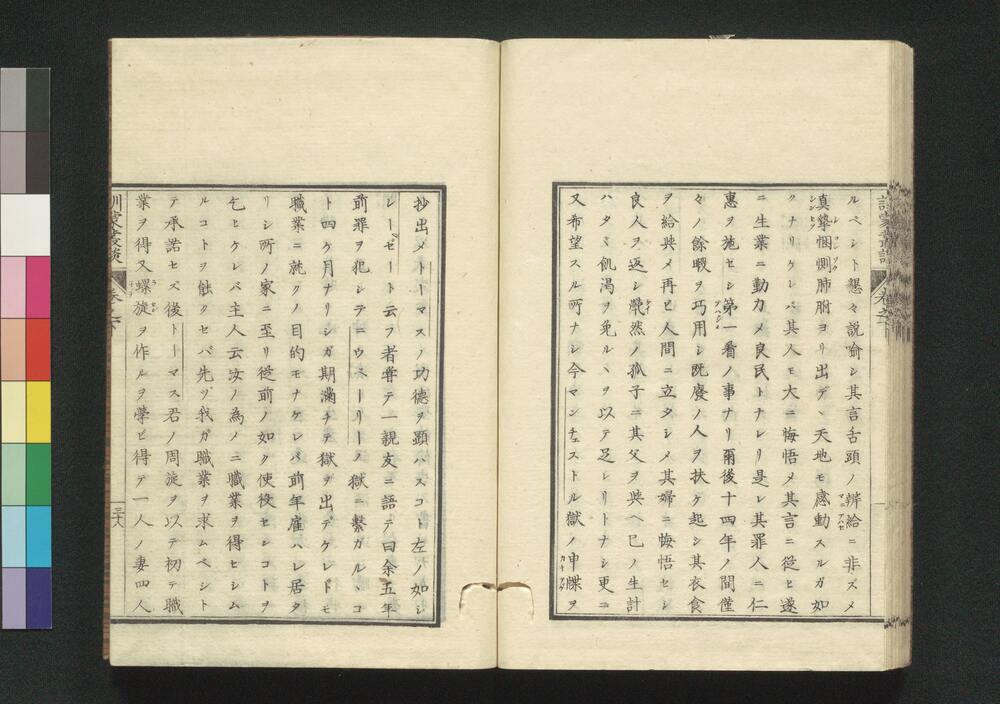 ルベシト懇々說喩シ其言舌頭ノ辨給ニ非ズメ
眞摯悃惻肺胕ヨリ出デヽ天地モ感動スルガ如
クナリケレバ其人モ大ニ悔悟メ其言ニ從ヒ遂
ニ生業ニ動力メ良民トナレリ是レ其罪人ニ仁
惠ヲ施セシ第一着ノ事ナリ爾後十四年ノ間僅
々ノ餘暇ヲ巧用シ旣廢ノ人ヲ扶ケ起シ其衣食
ヲ給與メ再ヒ人間ニ立タシメ其婦ニ悔悟セシ
良人ヲ返シ煢然ノ孤子ニ其父ヲ與ヘ已ノ生計
ハタヾ飢渴ヲ免ルヽヲ以テ足レリトナシ更ニ
又希望スル所ナシ今マンチェストル獄ノ申牒ヲ
抄出メトーマスノ功德ヲ顯ハスコト左ノ如シ
レーゼート云フ者嘗テ一親友ニ語テ曰余五年
前罪ヲ犯シテニウベーリーノ獄ニ繫ガルヽコ
ト四ケ月ナリシガ期滿チテ獄ヲ出デケレドモ
職業ニ就クノ目的モナケレバ前年雇ハレ居タ
リシ所ノ家ニ至リ從前ノ如ク使役セシコトヲ
乞ヒケレバ主人云汝ノ為メニ職業ヲ得セシム
ルコトヲ能クセバ先ヅ我ガ職業ヲ求ムベシト
テ承諾セズ後トーマス君ノ周旋ヲ以テ初テ職
業ヲ得又螺旋ヲ作ルヲ學ビ得テ一人ノ妻四人
訓蒙叢談
卷之下
三十八